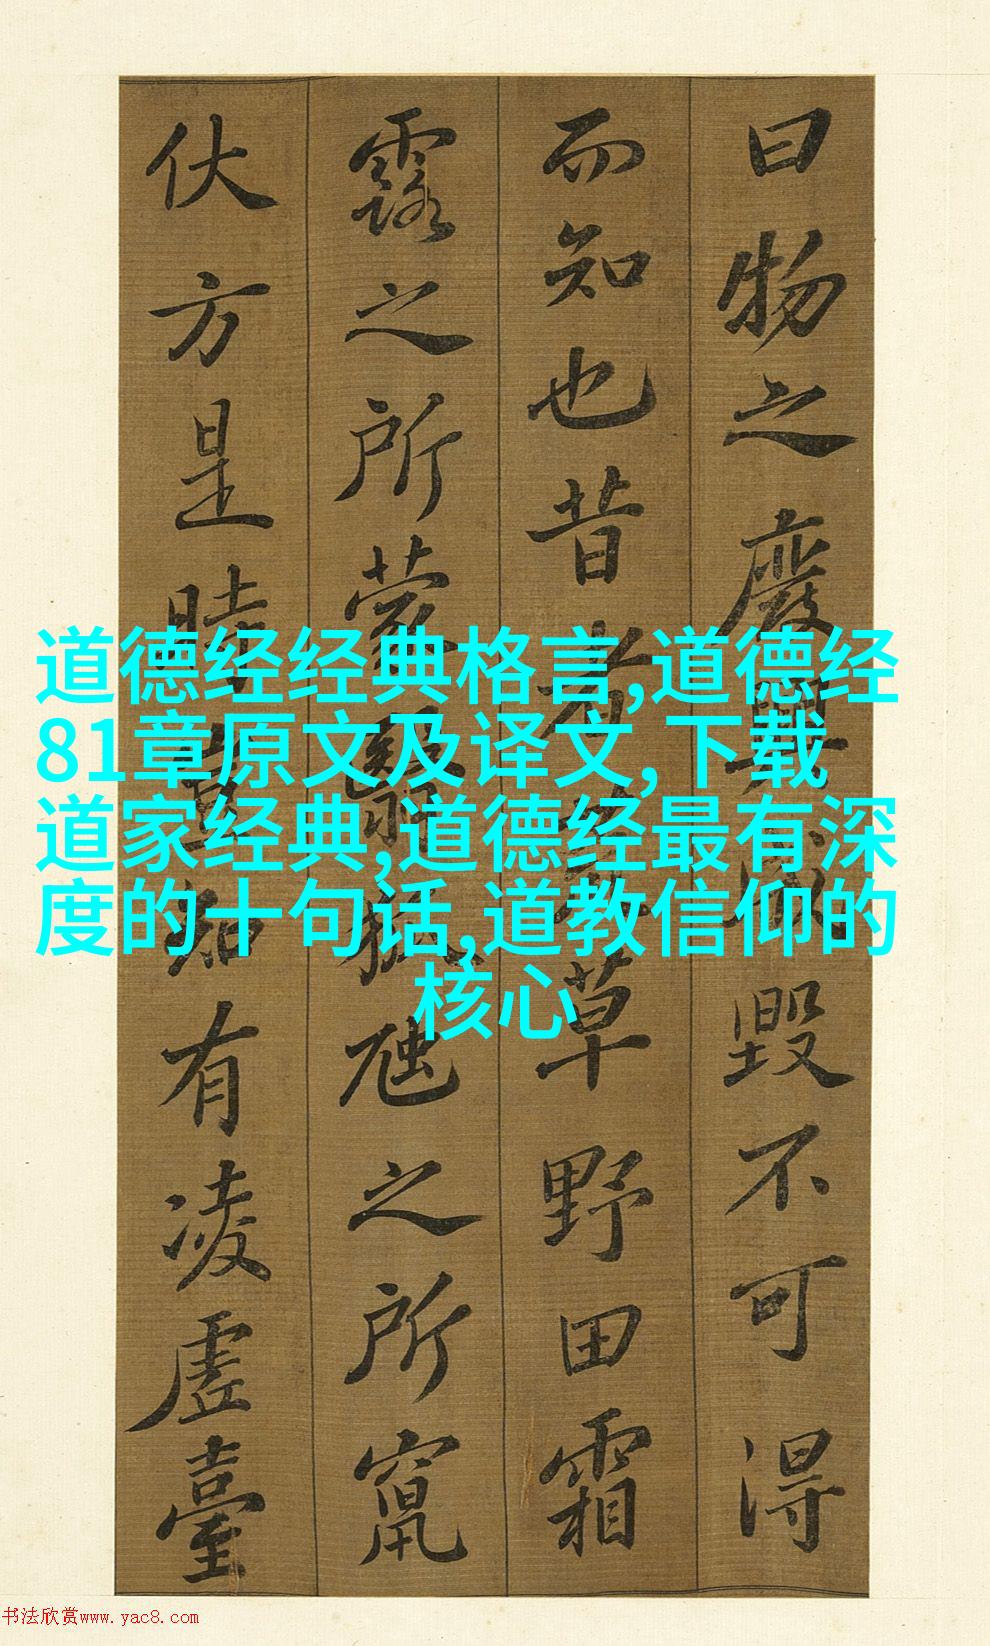 曰物之廢興成毀不可得
而知也昔者荒草野田霜
露之所蒙翳狐虺之所竄
伏方是時豈知有凌虛臺
道德经经典格言,道德经
81章原文及译文,下载
道家经典,道德经最有深
度的十句话,道教信仰的
核心
书法欣赏www.yac8.com